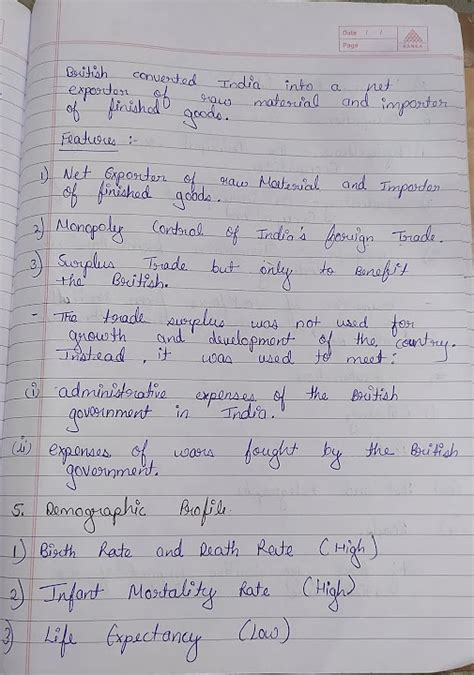 Date / /
Page
British converted India into a net
exporter of raw material and importer
of finished goods.
Features :-
1) Net Exporter of raw Material and Importer
of finished goods.
2) Monopoly Control of India's foreign Trade.
3) Surplus Trade but only to Benefit
the British.
- The trade surplus was not used for
growth and development of the country.
Instead, it was used to meet:
(i) administrative expenses of the British
government in India.
(ii) expenses of wars fought by the British
government.
5. Demographic Profile.
1) Birth Rate and Death Rate (High)
2) Infant Mortality Rate (High)
3) Life Expectancy (Low)